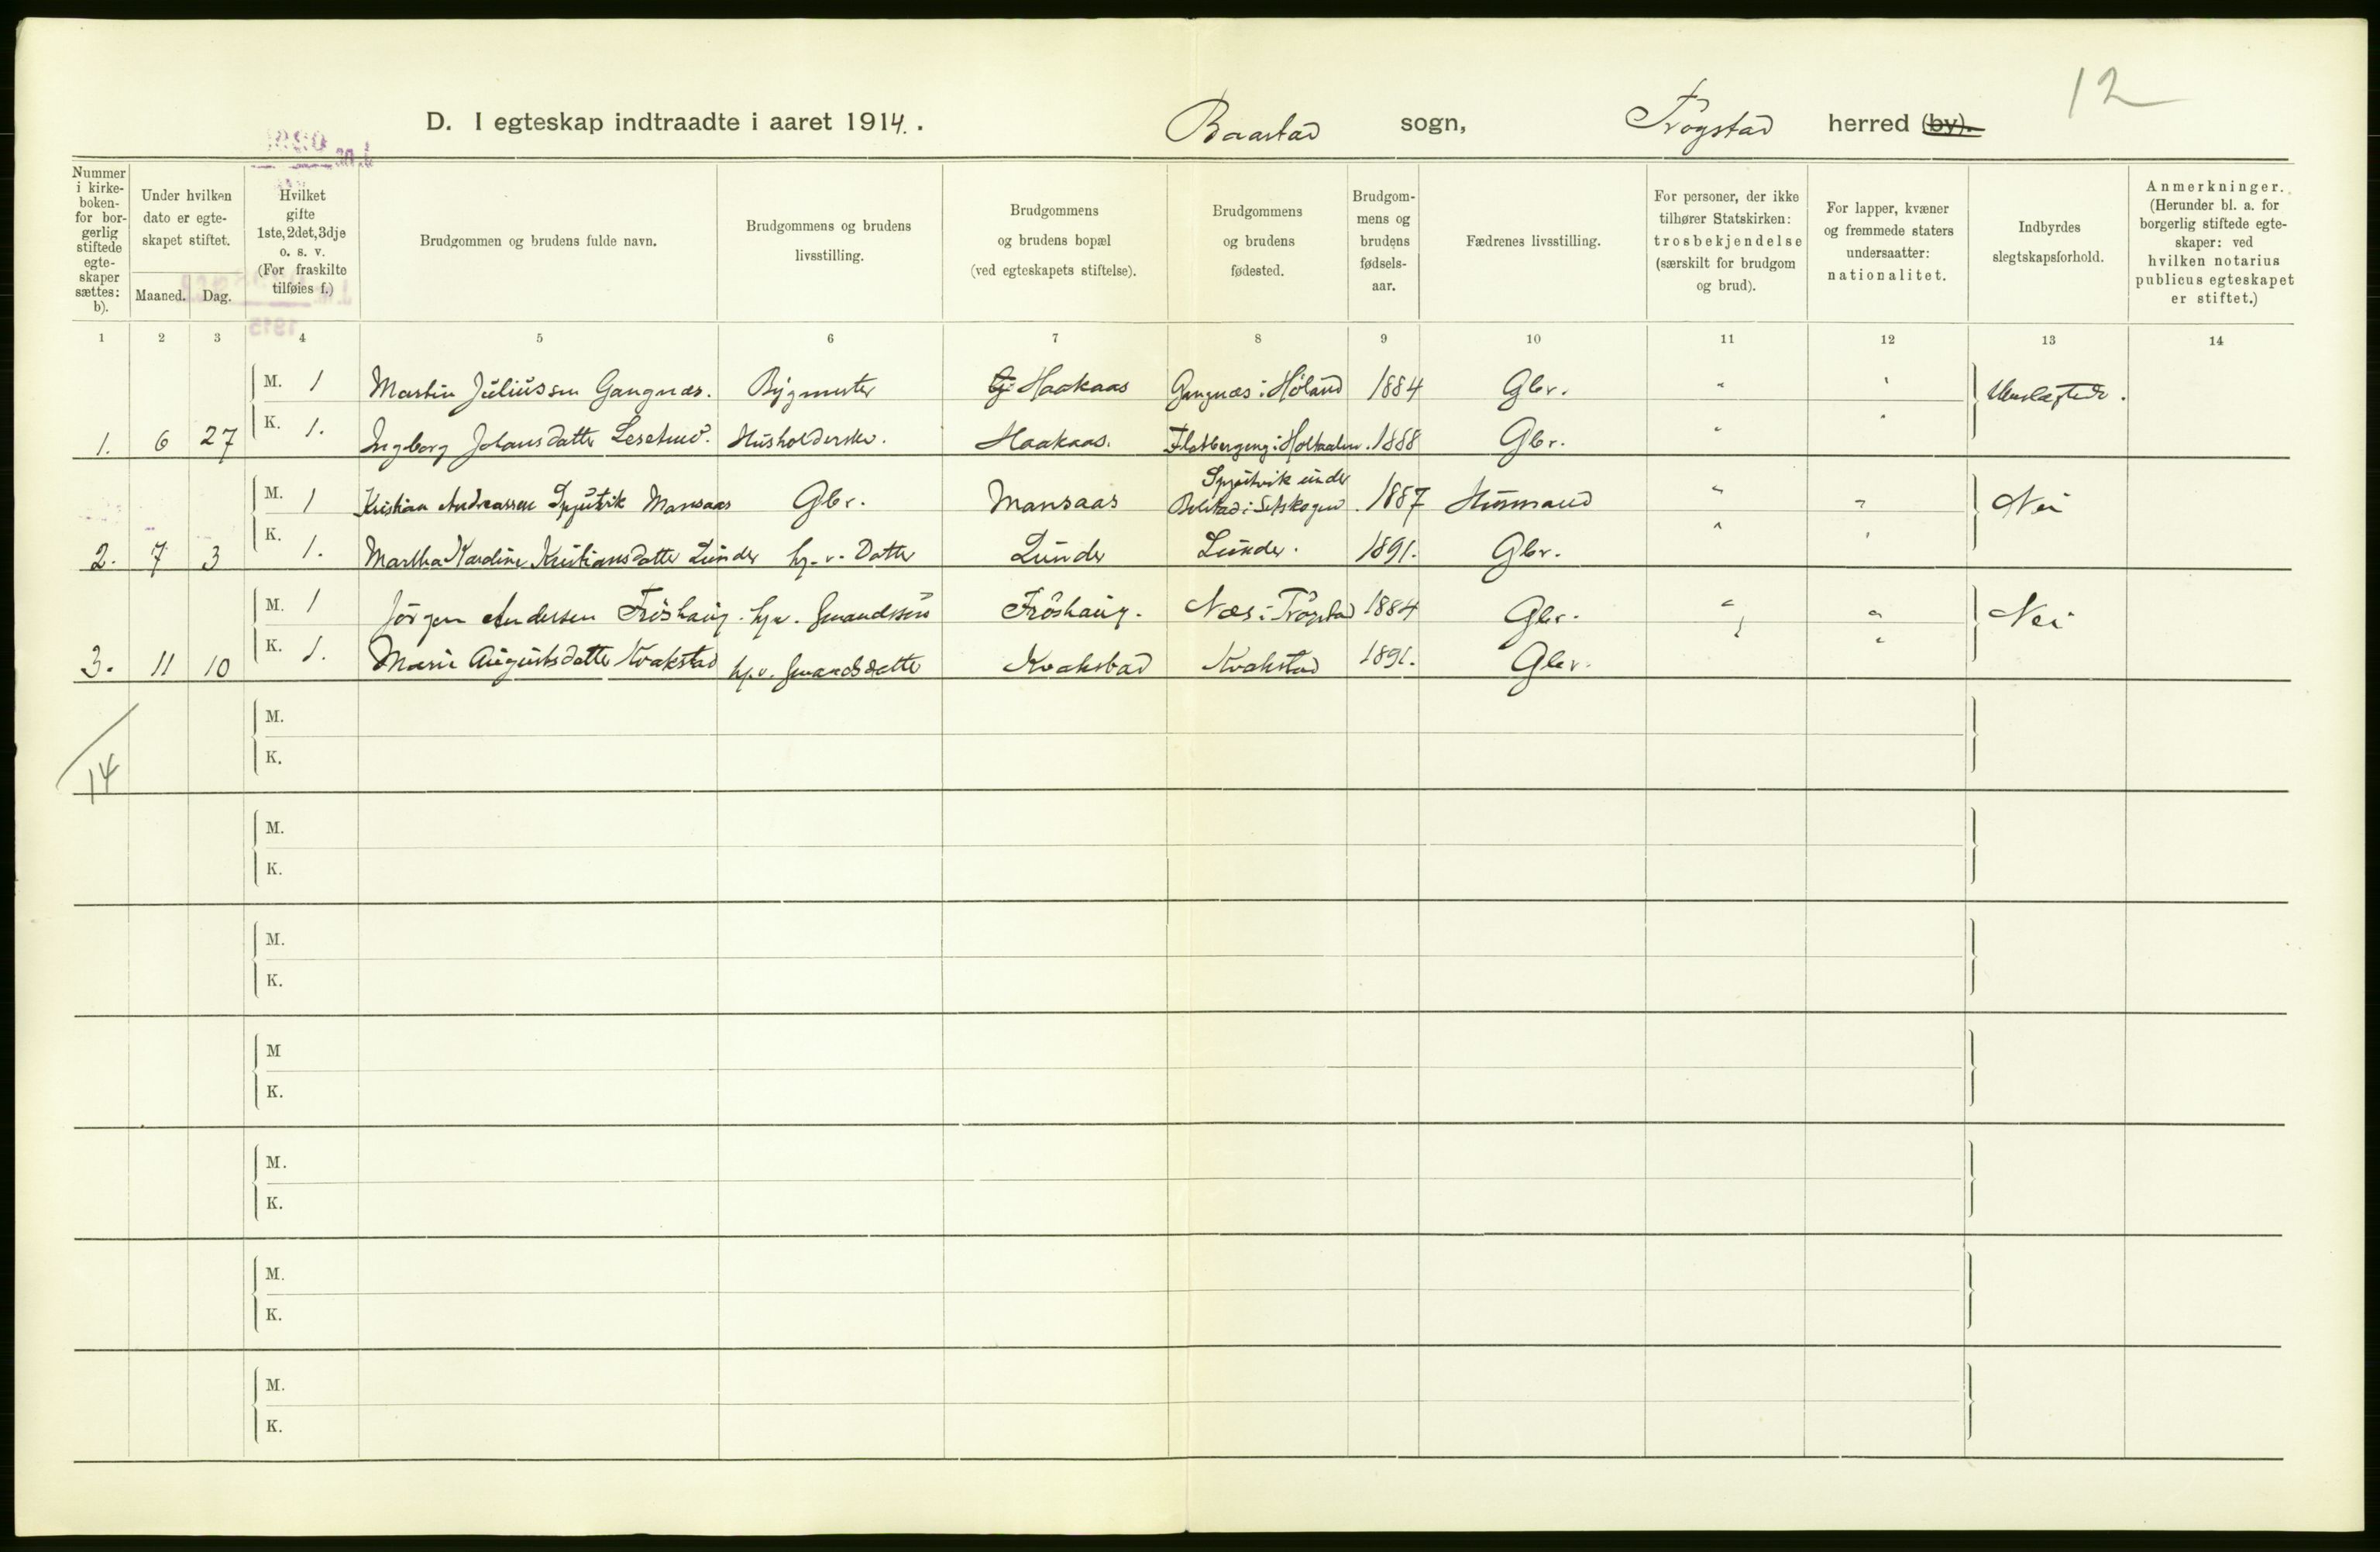 12
D. I egteskap indtraadte i aaret 1914. . Baastad sogn, Trøgstad herred (by).
Nummer i kirke-boken- for bor-gerlig stiftede egte-skaper sættes: b).
Under hvilken dato er egte-skapet stiftet.
Maaned. Dag.
Hvilket gifte 1ste, 2det, 3dje o. s. v. (For fraskilte tilføies f.)
Brudgommen og brudens fulde navn.
Brudgommens og brudens livsstilling.
Brudgommens og brudens bopæl (ved egteskapets stiftelse).
Brudgommens og brudens fødested.
Brudgom-mens og brudens fødsels-aar.
Fædrenes livsstilling.
For personer, der ikke tilhører Statskirken: trosbekjendelse (særskilt for brudgom og brud).
For lapper, kvæner og fremmede staters undersaatter: nationalitet.
Indbyrdes slegtskapsforhold.
Anmerkninger. (Herunder bl. a. for borgerlig stiftede egte-skaper: ved hvilken notarius publicus egteskapet er stiftet.)
1 2 3 4 5 6 7 8 9 10 11 12 13 14
M. 1 Martin Juliussen Gangnæs. Bygmester Haakaas Gangnæs i Høland 1884 Gbr. " "
1. 6 27 K. 1. Ingborg Johansdatter Husholderske. Haakaas. 1888 Gbr. " "
M. 1 Kristian Andreassen Spjutvik Mansaas Gbr. Mansaas Spjutvik under Bolstad i Setskogen. 1887 Husmand " " Nei
2. 7 3 K. 1. Martha Kardine Kristiansdatter Lunder hj. v. Datter Lunder Lunder. 1891. Gbr. " "
M. 1 Jørgen Andersen Frøshaug. hjv. Gmandssøn Frøshaug. Næs i Trøgstad 1884 Gbr. " " Nei
3. 11 10 K. 1. Marie Augustsdatter Kvakstad hj.v. Gmandsdatter Kvakstad Kvakstad 1891. Gbr. " "
M.
14 K.
M.
K.
M.
K.
M
K.
M.
K.
M.
K.
M.
K.